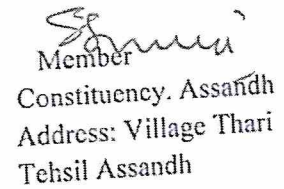 Member
Constituency. Assandh
Address: Village Thari
Tehsil Assandh